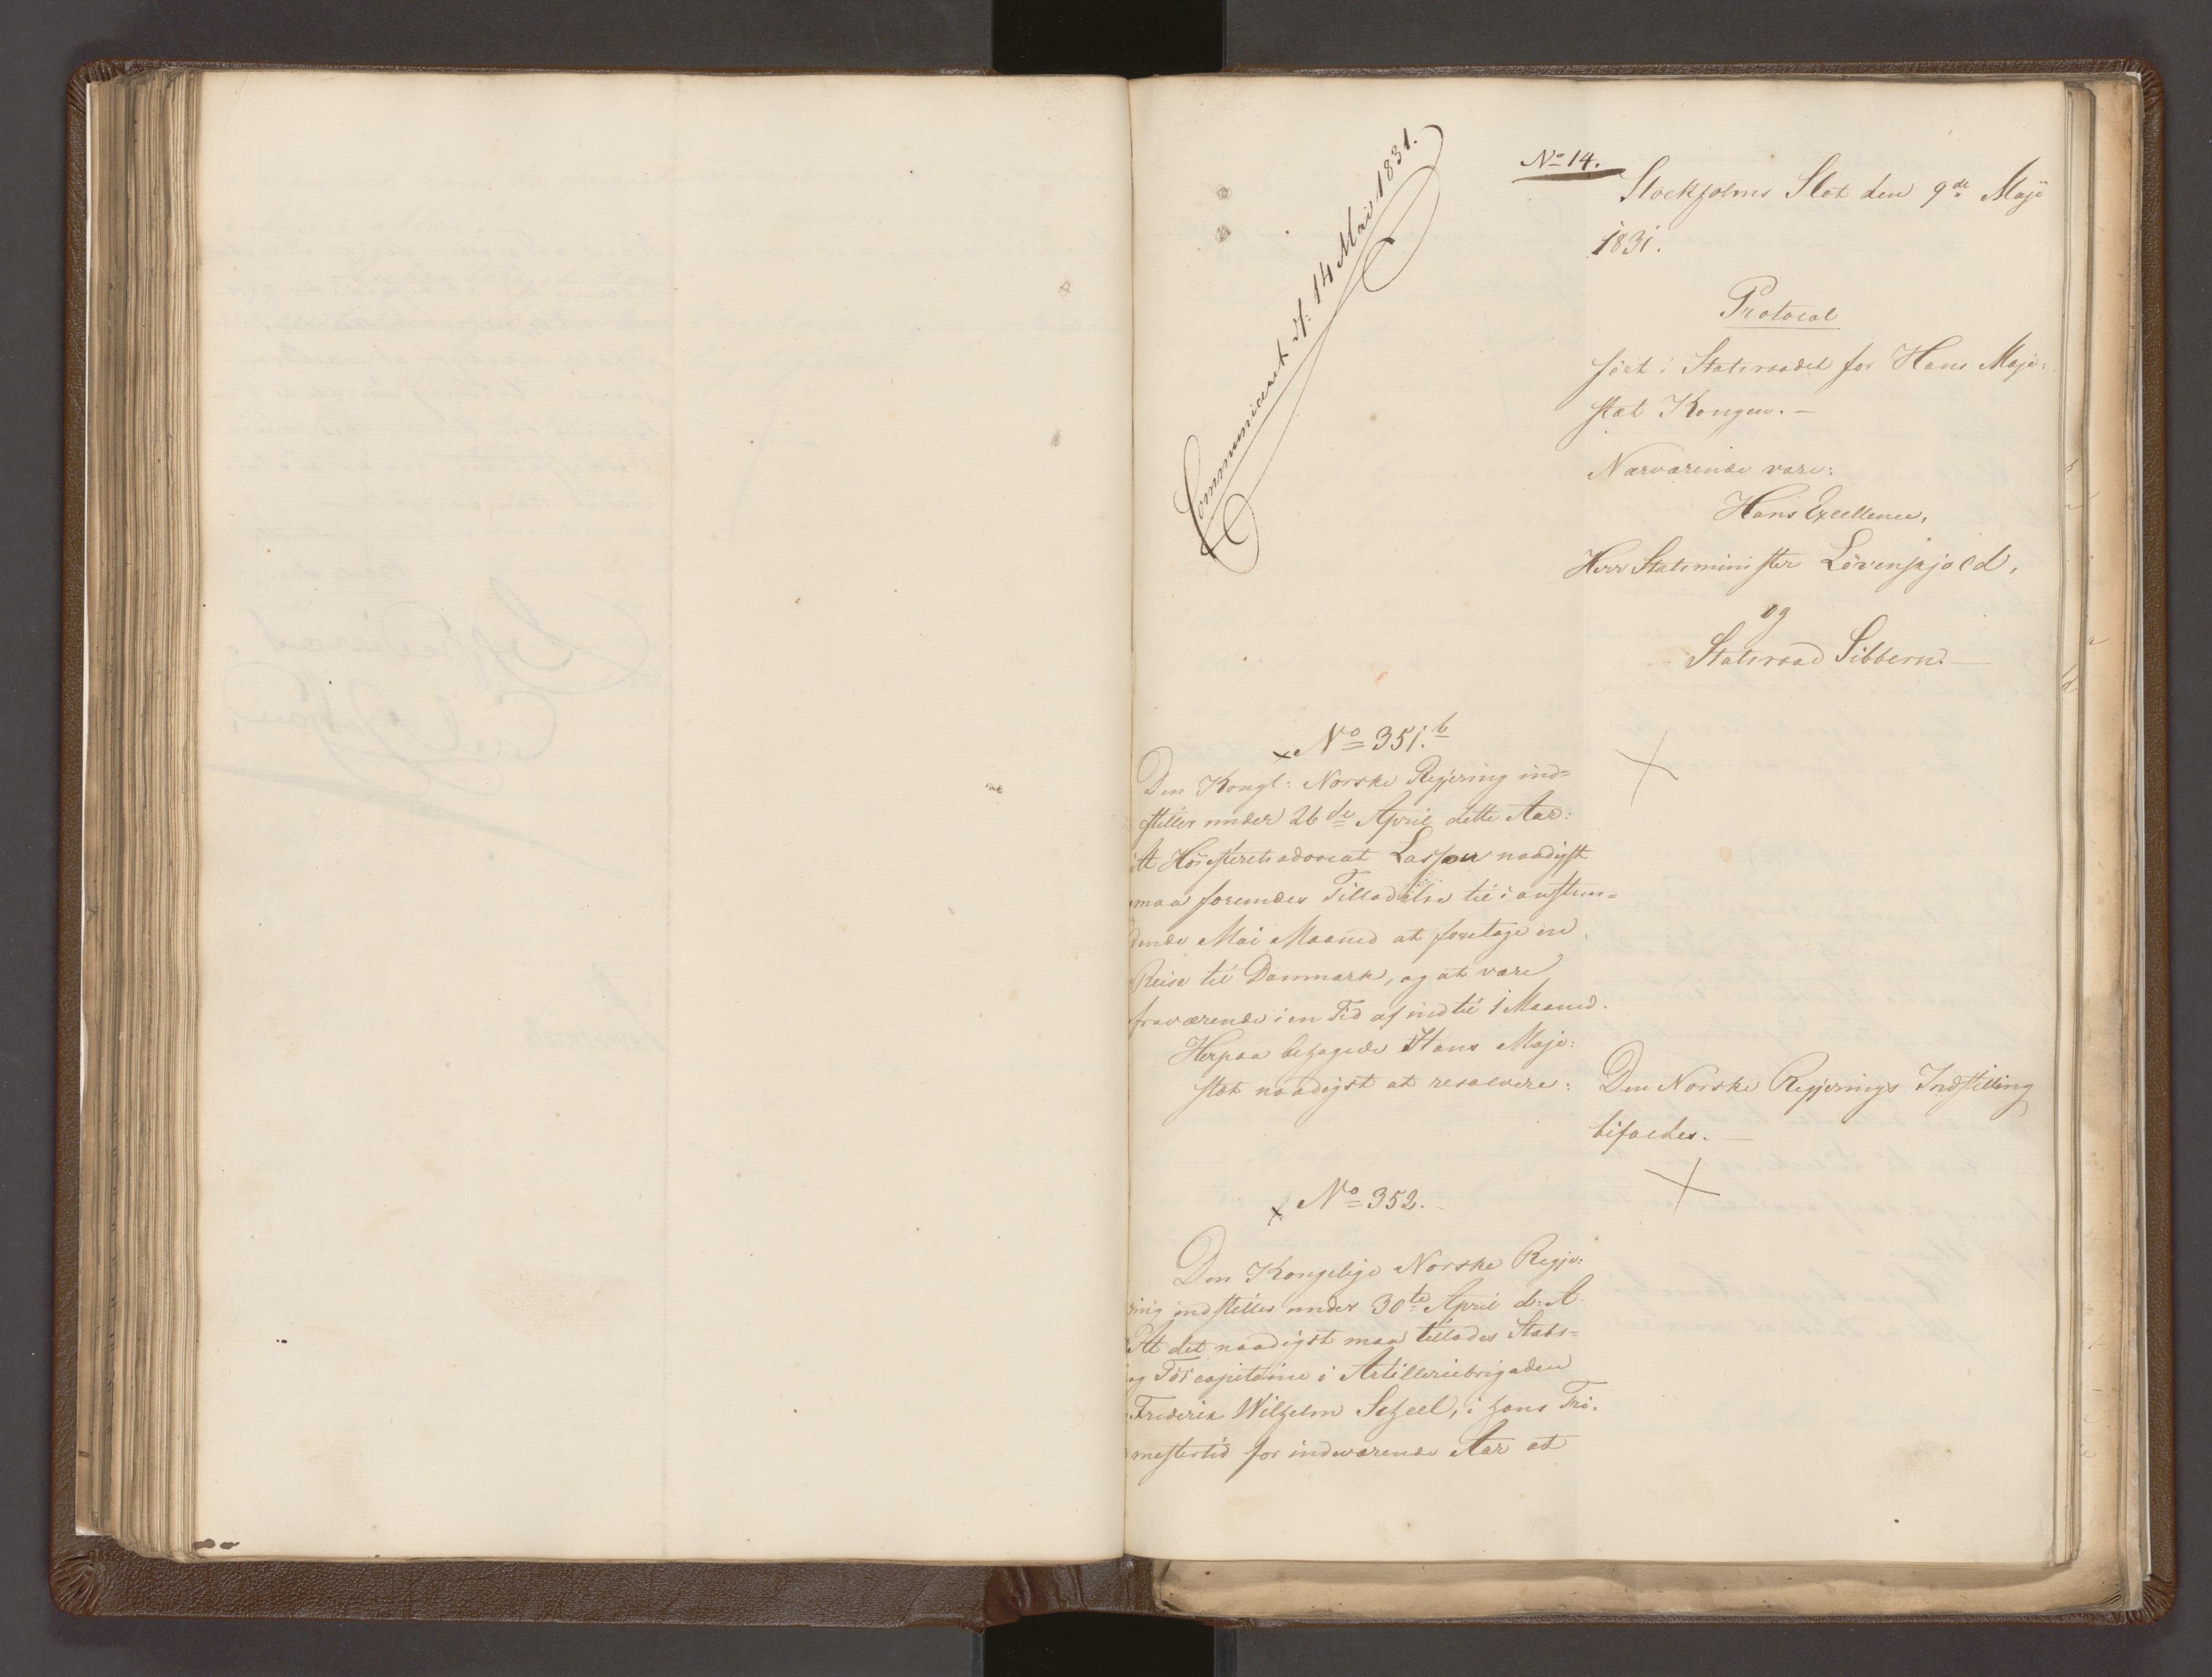 Communiceret d: 14 Mai 1831.
No 14.
Stockholms Slot den 9de Maji
1831.
Protocol
fört i Statsraadet for Hans Maje:
stæt Kongen. —
Nærværende vare:
Hans Excellence,
Herr Statsminister Lövenskjold,
og
Statsraad Sibbern. —
No 351.b
Den Kongl: Norske Regjering ind=
stiller under 26de April dette Aar:
At Höiesteretsadvocat Lasson naadigst
maa forundes Tilladelse til i anstun=
dende Mai Maaned at foretage en
Reise til Danmark, og at være
fraværende i en Tid af indtil 1 Maaned.
Herpaa behagede Hans Maje:
stæt naadigst at resolvere:
Den Norske Regjerings Indstilling
bifaldes. —
No 352.
Den Kongelige Norske Regje:
ring indstiller under 30te April d: A.
At det naadigst maa tillades Stabs=
og Töicapitaine i Artilleriebrigaden
Frederik Wilhelm Scheel, i hans Tri:
mestertid for indeværende Aar at